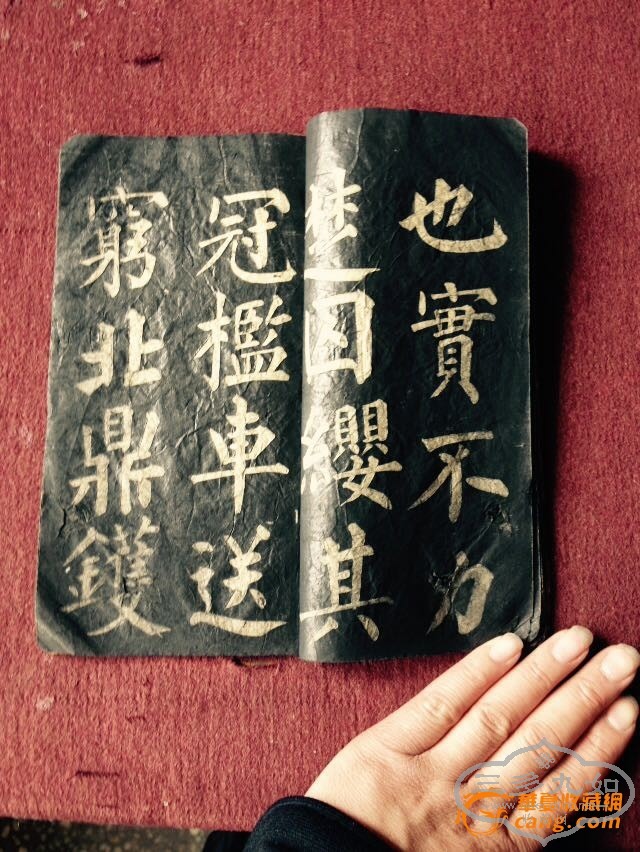 也實不力
楚囚纓其
冠檻車送
窮北鼎鑊
三多九如
華夏收藏網
cang.com